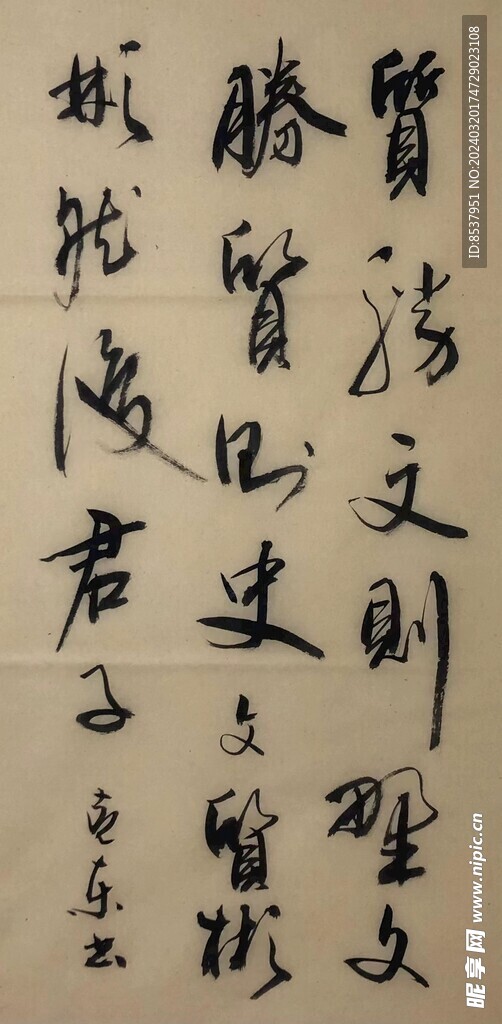 質勝文則野文
勝質則史文質彬
彬然後君子
东书
ID:8537951 NO:20240320174729023108
昵享网 www.nipic.cn